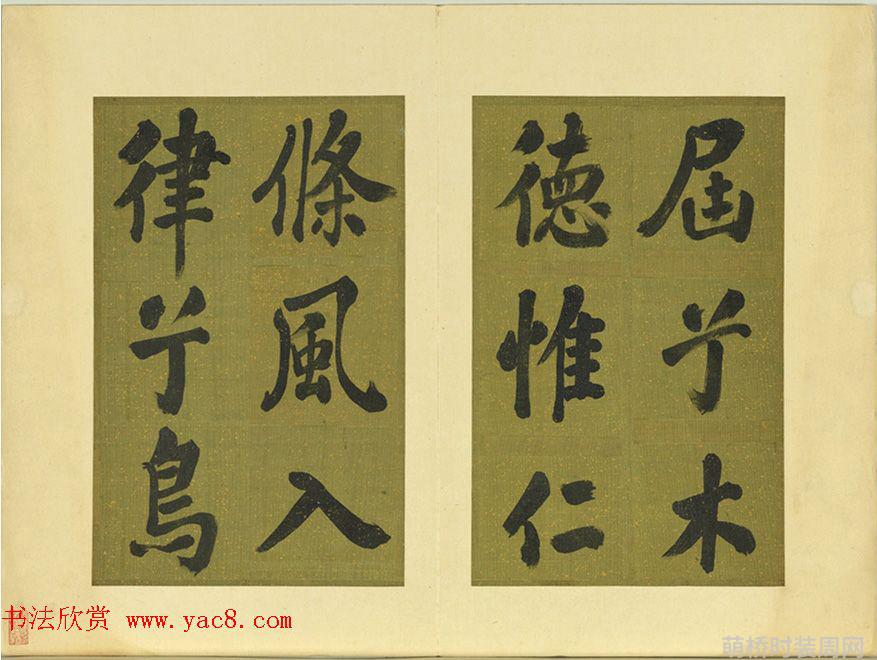 屆兮木
德惟仁
條風入
律兮鳥
书法欣赏 www.yac8.com
萌桥时装周网